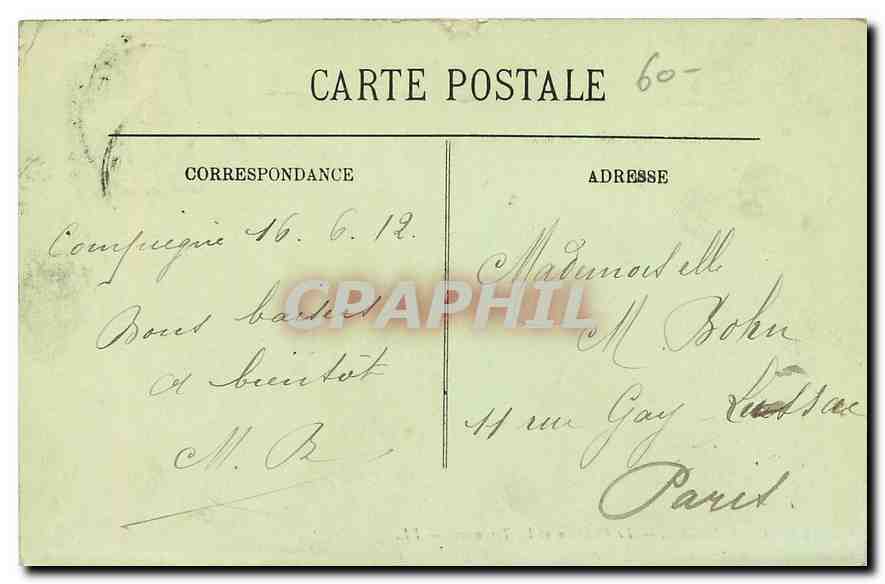 CARTE POSTALE
60-
CORRESPONDANCE
Compiegne 16. 6. 12.
Bons baisers
a bientôt
M. B
ADRESSE
Mademoiselle
M. Bohn
11 rue Gay Lussac
Paris.
CPAPHIL